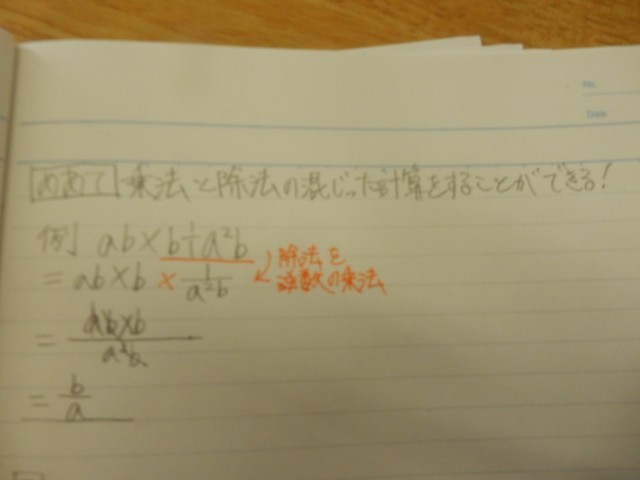 No.
Date
めあて 乗法と除法の混じった計算をすることができる!
例 ab×b÷a²b
= ab×b × 1/a²b 除法を
逆数の乗法
= ab×b/a²b
= b/a